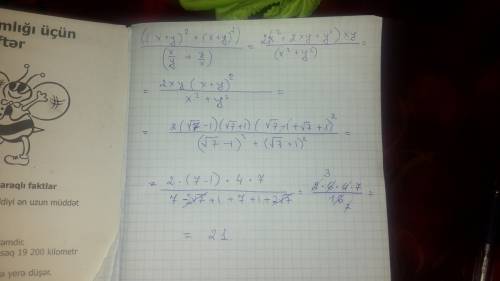 mlığı üçün
ftər
araqlı faktlar
ldiyi ən uzun müddət
əmdir.
saq 19 200 kilometr
ə yerə düşər.
((x+y)² + (x+y)²) / (x/y + y/x) = 2(x² + 2xy + y²) xy / (x² + y²) =
= 2xy (x+y)² / (x² + y²) =
= 2(√7-1)(√7+1)(√7-1+√7+1)² / ((√7-1)² + (√7+1)²) =
= 2·(7-1)·4·7 / (7-2√7+1+7+1+2√7) = 2·6·4·7 / 16 =
= 21